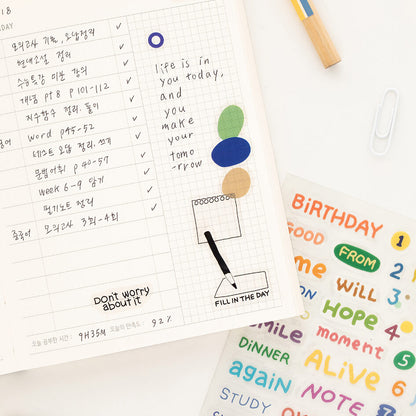 18
DAY
모의고사 기출, 오답정리
현대소설 정리
수능특강 미분 강의
개념 pt8 p101-112
지수함수 정리. 풀이
word p45-52
테스트 오답 정리. 쓰기
문법어휘 p40-57
week 6-9 암기
필기노트 정리
중국어 모의고사 3회-4회
life is in
you today,
and
you
make
your
tomo
-rrow
FILL IN THE DAY
Don't worry
about it
오늘 공부한 시간 : 9H35M 오늘의 만족도 : 92%
BiRTHDAY 1
GOOD FROM 2
me WiLL 3
ON HOPE 4
SMiLE moment 5
DiNNER ALiVE 6
again NOTE 7
STUDY